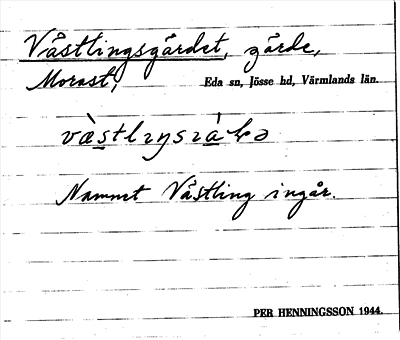 Våstlingsgärdet, gärde,
Morast, Eda sn, Jösse hd, Värmlands län.
Namnet Våstling ingår.
PER HENNINGSSON 1944.